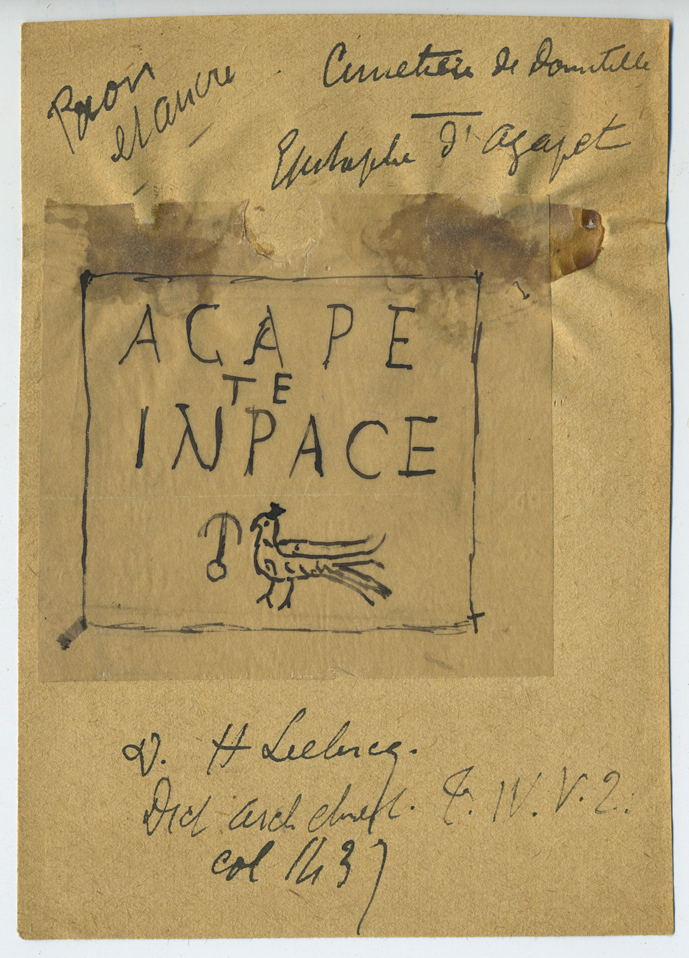 Paon
et ancre
Cimetière de Domitille
Epitaphe d'Agapet
AGAPE
TE
INPACE
V. H Leclercq.
Dict arch chret. T. IV. V. 2.
col 1437